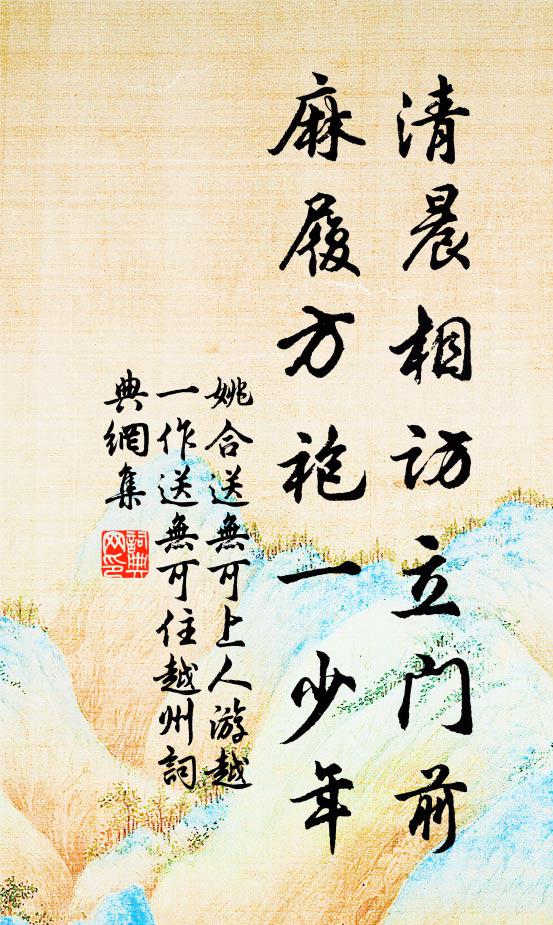 清晨相訪立門前
麻履方袍一少年
姚合送無可上人游越
一作送無可住越州詞
典網集
詞典
网印